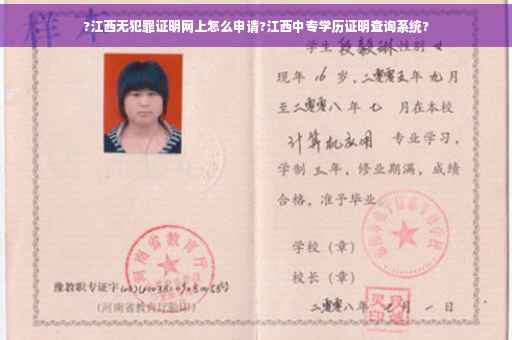 ?江西无犯罪证明网上怎么申请?江西中专学历证明查询系统?
样本
学生段毅琳性别女
现年16岁,二零零五年九月
至二零零八年七 月在本校
计算机应用 专业学习,
学制三年,修业期满,成绩
合格,准予毕业
学校(章)
河南省教育厅
校长(章)
豫教职专证字
(河南省教育厅验印)
二零零八年七月一日